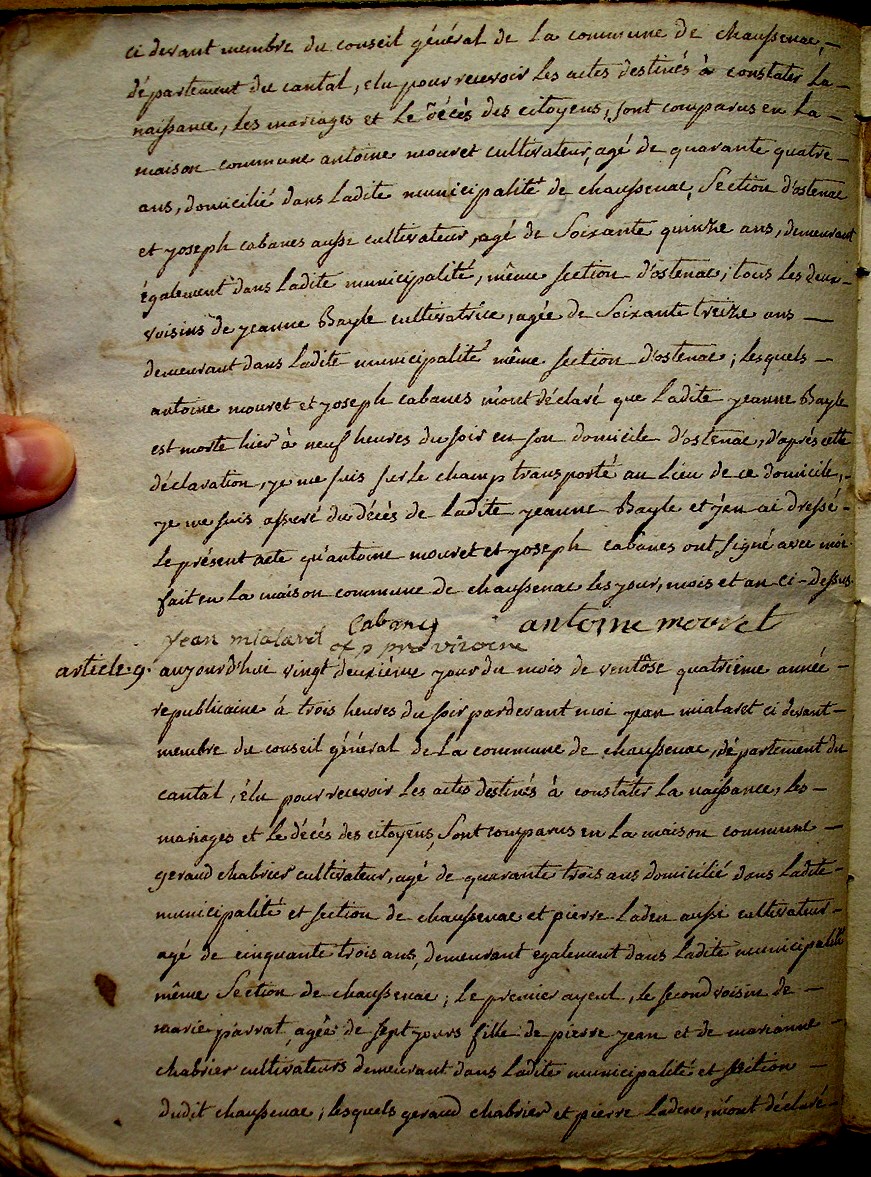 ci devant membre du conseil général de la commune de chaussenac, —
département du cantal, elu pour recevoir les actes destinés à constater la —
naissance, les mariages et le décès des citoyens, sont comparus en la —
maison commune antoine mouret cultivateur, agé de quarante quatre —
ans, domicilié dans ladite municipalité de chaussenac, Section d'ostenac
et joseph cabanes aussi cultivateur, agé de Soixante quinze ans, demeurant
également dans ladite municipalité, même section d'ostenac; tous les deux -
voisins de jeanne Bayle cultivatrice, agée de Soixante treize ans —
demeurant dans ladite municipalité même section d'ostenac; lesquels —
antoine mouret et joseph cabanes m'ont déclaré que ladite jeanne Bayle
est morte hier à neuf heures du soir en son domicile d'ostenac, d'après cette
déclaration, je me suis sur le champ transporté au lieu de ce domicile, -
je me suis assuré du décès de ladite jeanne Bayle et j'en ai dressé -
le présent acte qu'antoine mouret et joseph cabanes ont signé avec moi
fait en la maison commune de chaussenac les jour, mois et an ci-dessus
jean mialaret cabanes antoine mouret
article 9. aujourd'hui vingt deuxième jour du mois de ventôse quatrième année —
republicaine à trois heures du soir pardevant moi jean mialaret ci devant —
membre du conseil général de la commune de chaussenac, département du
cantal, élu pour recevoir les actes destinés à constater la naissance, les —
mariages et le décès des citoyens, sont comparus en la maison commune —
geraud chabrier cultivateur, agé de quarante trois ans domicilié dans ladite -
municipalité et section de chaussenac et pierre laden aussi cultivateur -
agé de cinquante trois ans, demeurant egalement dans ladite municipalité
même Section de chaussenac; le premier ayeul, le second voisin de —
marie parrat, agée de sept jours fille de pierre jean et de marianne —
chabrier cultivateurs demeurant dans ladite municipalité et section —
dudit chaussenac; lesquels geraud chabrier et pierre laden, m'ont déclaré -